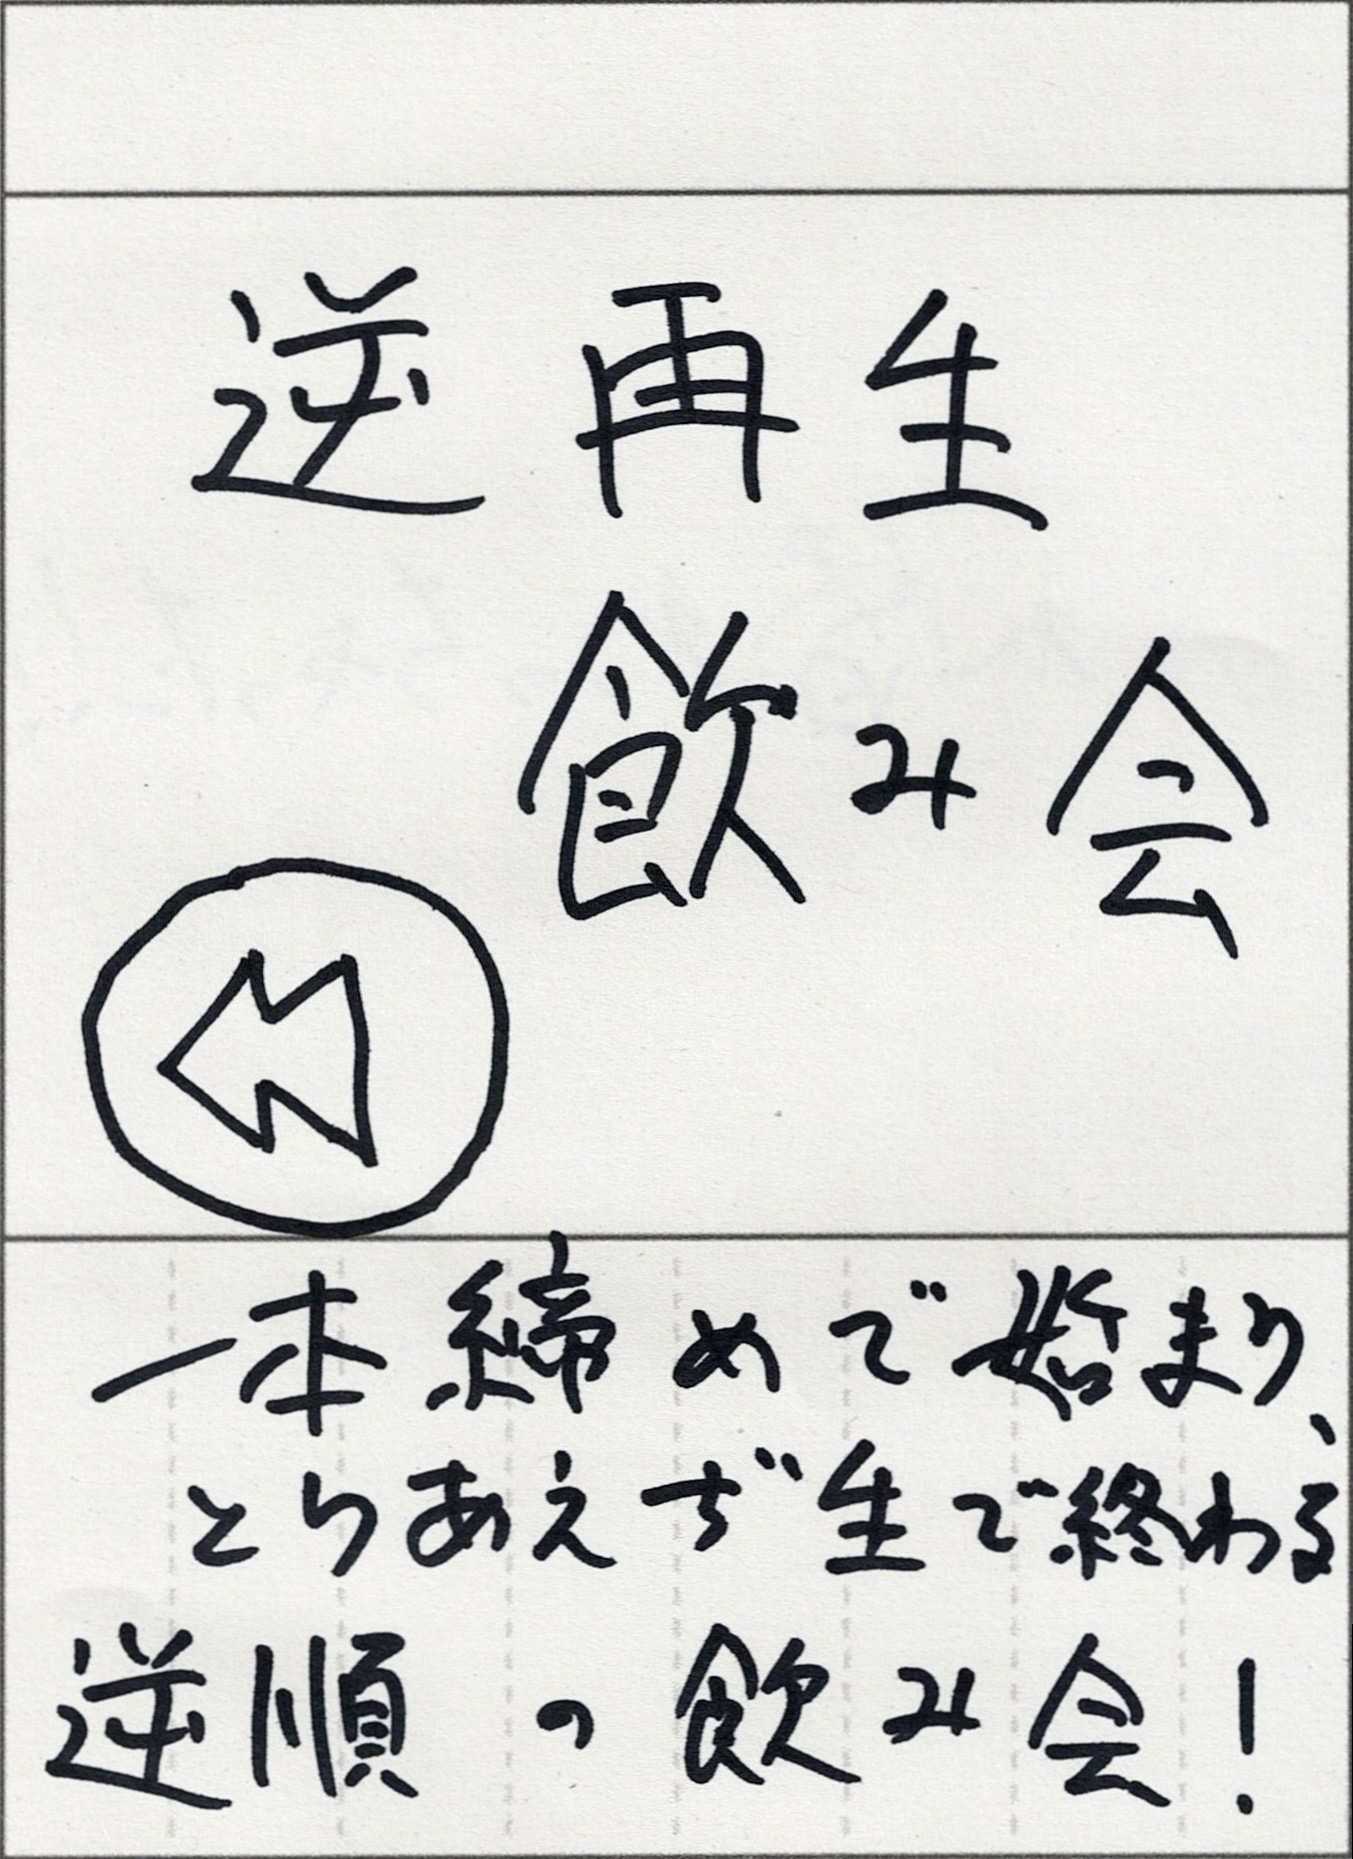 逆再生
飲み会
一本締めで始まり、
とりあえず生で終わる
逆順の飲み会!